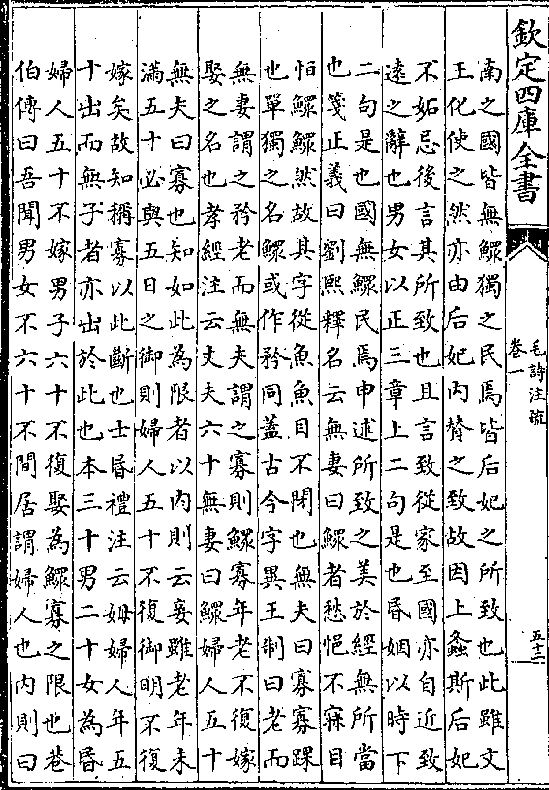 欽定四庫全書
毛詩注疏
卷一
五十二
南之國皆無鰥獨之民焉皆后妃之所致也此雖文
王化使之然亦由后妃内賛之致故因上螽斯后妃
不妬忌後言其所致也且言致從家至國亦自近致
逺之辭也男女以正三章上二句是也昏姻以時下
二句是也國無鰥民焉申述所致之美於經無所當
也箋正義曰劉熙釋名云無妻曰鰥者愁悒不寐目
怕鰥鰥然故其字從魚魚目不閉也無夫曰寡寡踝
也單獨之名鰥或作矜同蓋古今字異王制曰老而
無妻謂之矜老而無夫謂之寡則鰥寡年老不復嫁
娶之名也孝經注云丈夫六十無妻曰鰥婦人五十
無夫曰寡也知如此為限者以内則云妾雖老年未
滿五十必與五日之御則婦人五十不復御明不復
嫁矣故知稱寡以此斷也士昏禮注云姆婦人年五
十出而無子者亦出於此也本三十男二十女為昏
婦人五十不嫁男子六十不復娶為鰥寡之限也巷
伯傳曰吾聞男女不六十不間居謂婦人也内則曰